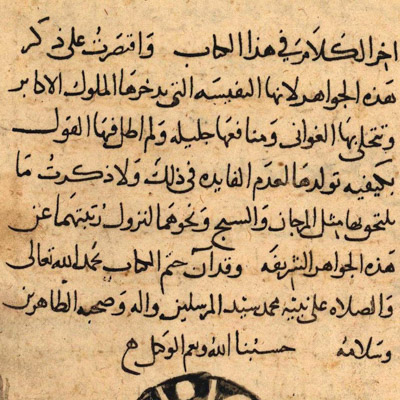 اخر الكلام في هذا الكتاب واقتصرت على ذكر
هذه الجواهر لانها النفيسه التي يدخرها الملوك الاكابر
وتتحلى بها الغواني ومنافعها جليله ولم اطل فيها القول
بكيفيه تولدها لعدم الفايده في ذلك ولا ذكرت ما
يلتحق بها مثل المرجان والسبج ونحوهما لنزول رتبتهما عن
هذه الجواهر الشريفه وقد آن ختم الكتاب بحمد الله تعالى
والصلاه على نبيه محمد سيد المرسلين واله وصحبه الطاهرين
وسلامه حسبنا الله ونعم الوكيل